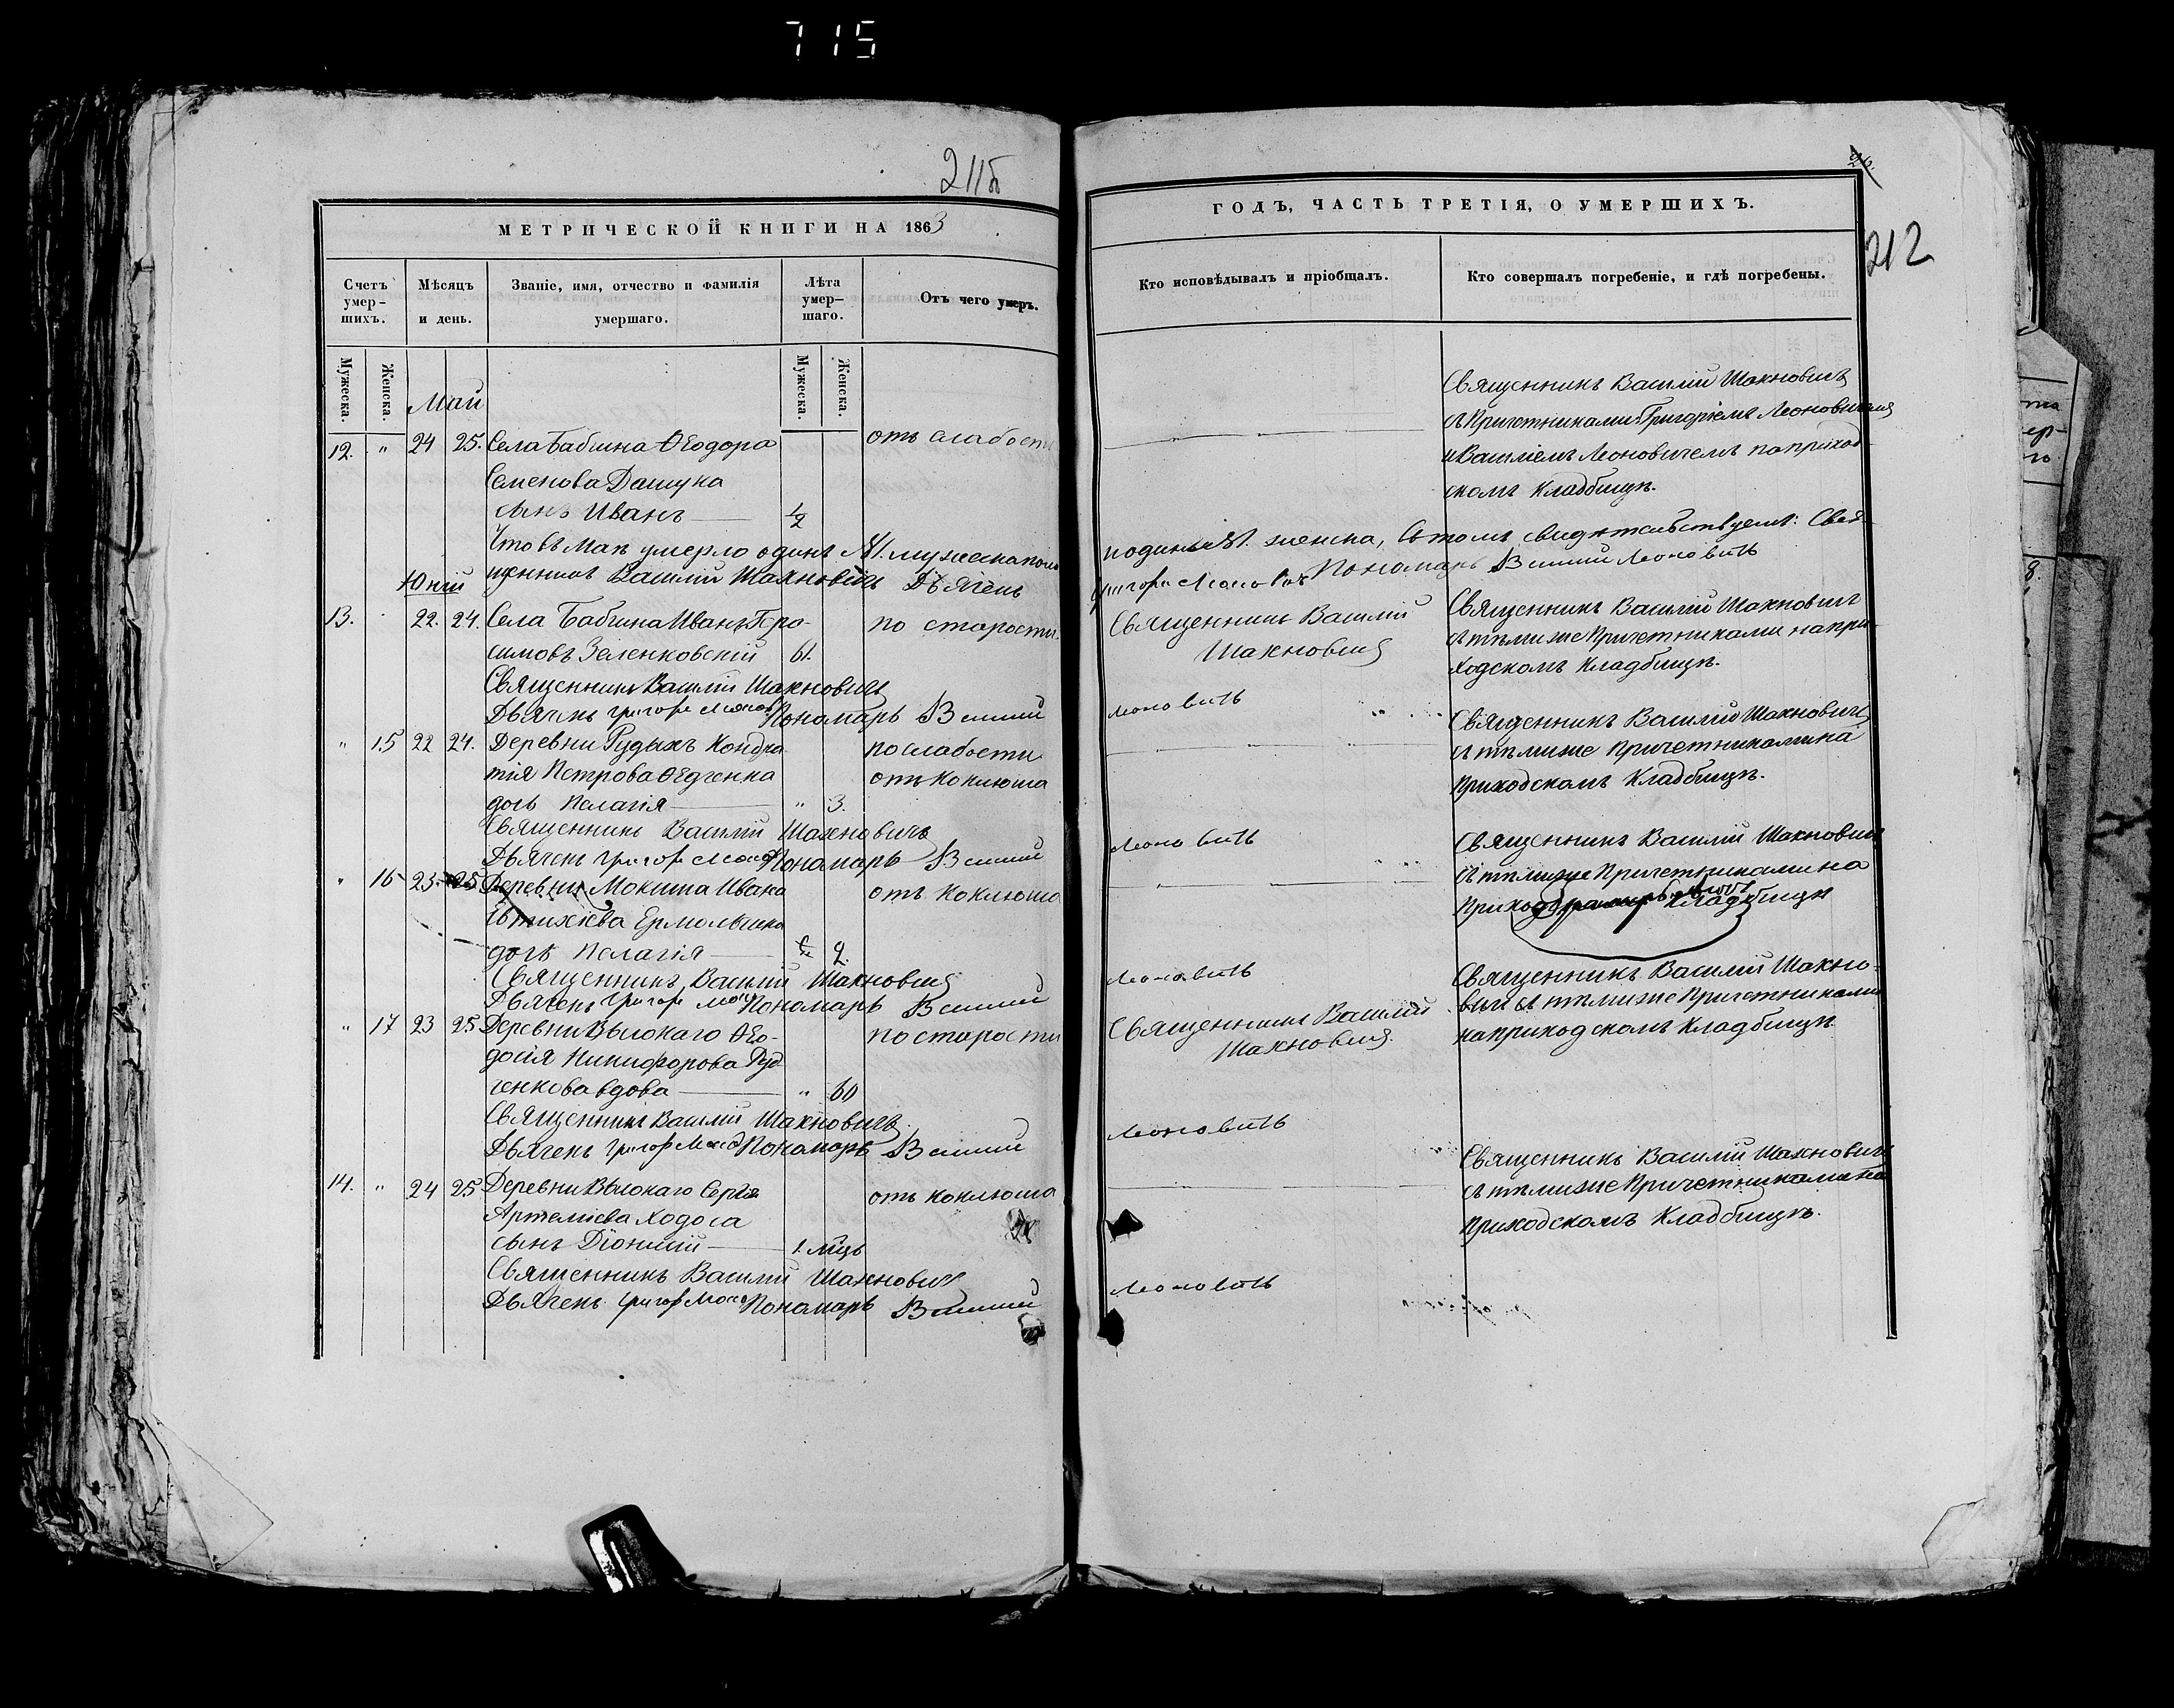 715
211б
МЕТРИЧЕСКОЙ КНИГИ НА 1863
Счетъ умер-шихъ.
Мѣсяцъ и день.
Званіе, имя, отчество и фамилія умершаго.
Лѣта умер-шаго.
Отъ чего умеръ.
Мужеска.
Женска.
Мужеска.
Женска.
Май
12. " 24 25. Села Бабчина Ѳеодора отъ слабости
Семенова Дашука
сынъ Иванъ 1/2
Что въ Маѣ умерло одинъ №1. мужеска пола
Юній
щенникъ Василій Шахновичъ Дьячекъ
13. 22. 24. Села Бабчина Иванъ Гера- по старости
симовъ Зеленковскій 61.
Священникъ Василій Шахновичъ
Дьячекъ Григорій Пономарь Василій
" 15 22 24. Деревни Рудыхъ Кондра- по слабости
тія Петрова Ѳедченка отъ коклюша
дочь Пелагія " 3.
Священникъ Василій Шахновичъ
Дьячекъ Григорій Пономарь Василій
" 16 23. 25 Деревни Мокиша Ивана отъ коклюша
Евтихіева Ермольчика
дочь Пелагія 2.
Священникъ Василій Шахновичъ
Дьячекъ Григорій Пономарь Василій
" 17 23 25 Деревни Вѣлокаго Ѳео- по старости
досія Никифорова Руд
ченкова вдова " 60
Священникъ Василій Шахновичъ
Дьячекъ Григорій Пономарь Василій
14. " 24 25 Деревни Вѣлокаго Сергія отъ коклюша
Артеміева Ходоса
сынъ Діонисій 1. мѣцъ
Священникъ Василій Шахновичъ
Дьячекъ Григорій Пономарь Василій
26.
212
ГОДЪ, ЧАСТЬ ТРЕТІЯ, О УМЕРШИХЪ.
Кто исповѣдывалъ и пріобщалъ.
Кто совершалъ погребеніе, и гдѣ погребены.
Священникъ Василій Шахновичъ
съ Причетниками Григоріемъ Леоновичемъ
и Василіемъ Леоновичемъ на приход-
скомъ кладбищѣ.
и одинъ №1. женска, въ томъ свидѣтельствуемъ: Свя-
Григорій Леоновичъ Пономарь Василій Леоновичъ
Священникъ Василій
Шахновичъ
Священникъ Василій Шахновичъ
съ тѣми же Причетниками на при-
ходскомъ кладбищѣ.
Леоновичъ
Священникъ Василій Шахновичъ
съ тѣми же Причетниками на
приходскомъ кладбищѣ.
Леоновичъ
Священникъ Василій Шахновичъ
съ тѣми же Причетниками на
кладбищѣ
Леоновичъ
Священникъ Василій
Шахновичъ.
Священникъ Василій Шахно-
вичъ съ тѣми же Причетниками
на приходскомъ кладбищѣ
Леоновичъ
Священникъ Василій Шахновичъ
съ тѣми же Причетниками на
приходскомъ кладбищѣ.
Леоновичъ